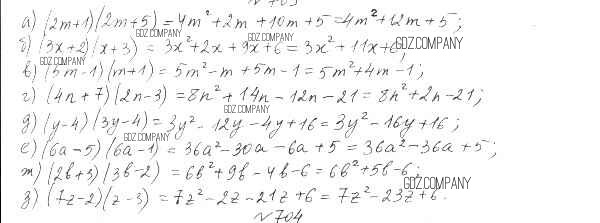 а) (2m+1)(2m+5) = 4m²+2m+10m+5 = 4m²+12m+5;
б) (3x+2)(x+3) = 3x²+2x+9x+6 = 3x²+11x+6
в) (5m-1)(m+1) = 5m²-m+5m-1 = 5m²+4m-1;
г) (4n+7)(2n-3) = 8n²+14n-12n-21 = 8n²+2n-21;
д) (y-4)(3y-4) = 3y²-12y-4y+16 = 3y²-16y+16;
е) (6a-5)(6a-1) = 36a²-30a-6a+5 = 36a²-36a+5;
ж) (2b+3)(3b-2) = 6b²+9b-4b-6 = 6b²+5b-6;
з) (7z-2)(z-3) = 7z²-2z-21z+6 = 7z²-23z+6.
№704
GDZ.COMPANY
GDZ.COMPANY
GDZ.COMPANY
GDZ.COMPANY
GDZ.COMPANY
GDZ.COMPANY
GDZ.COMPANY